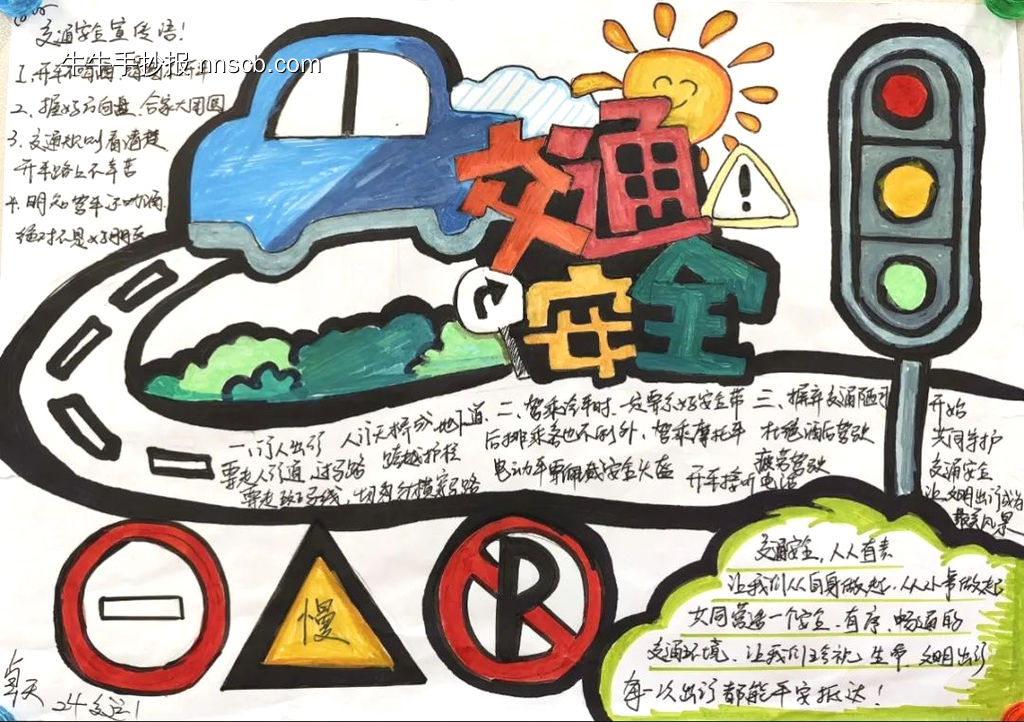 交通安全宣传语!
牛牛手抄报.nnscb.com
1、开车不
2、握好方向盘、合家大团圆
3、交通规则看清楚
开车路上不辛苦
4、明知驾车还劝酒.
绝对不是好朋友
交通
安全
一、行人出行
要走人行道 过马路
要走斑马线,
人行天桥或地下道、
跨越护栏
横穿马路
二、驾乘汽车时.一定要系好安全带
后排乘客也不例外,驾乘摩托车
电动车要佩戴安全头盔
三、摒弃交通陋习
杜绝酒后驾驶
疲劳驾驶
开车接听电话
开始
共同守护
交通安全
让文明出行成为
慢
P
交通安全,人人有责
让我们从自身做起.从小事做起
共同营造一个安全、有序、畅通的
交通环境、让我们珍视生命 文明出行
每一次出行都能平安抵达!